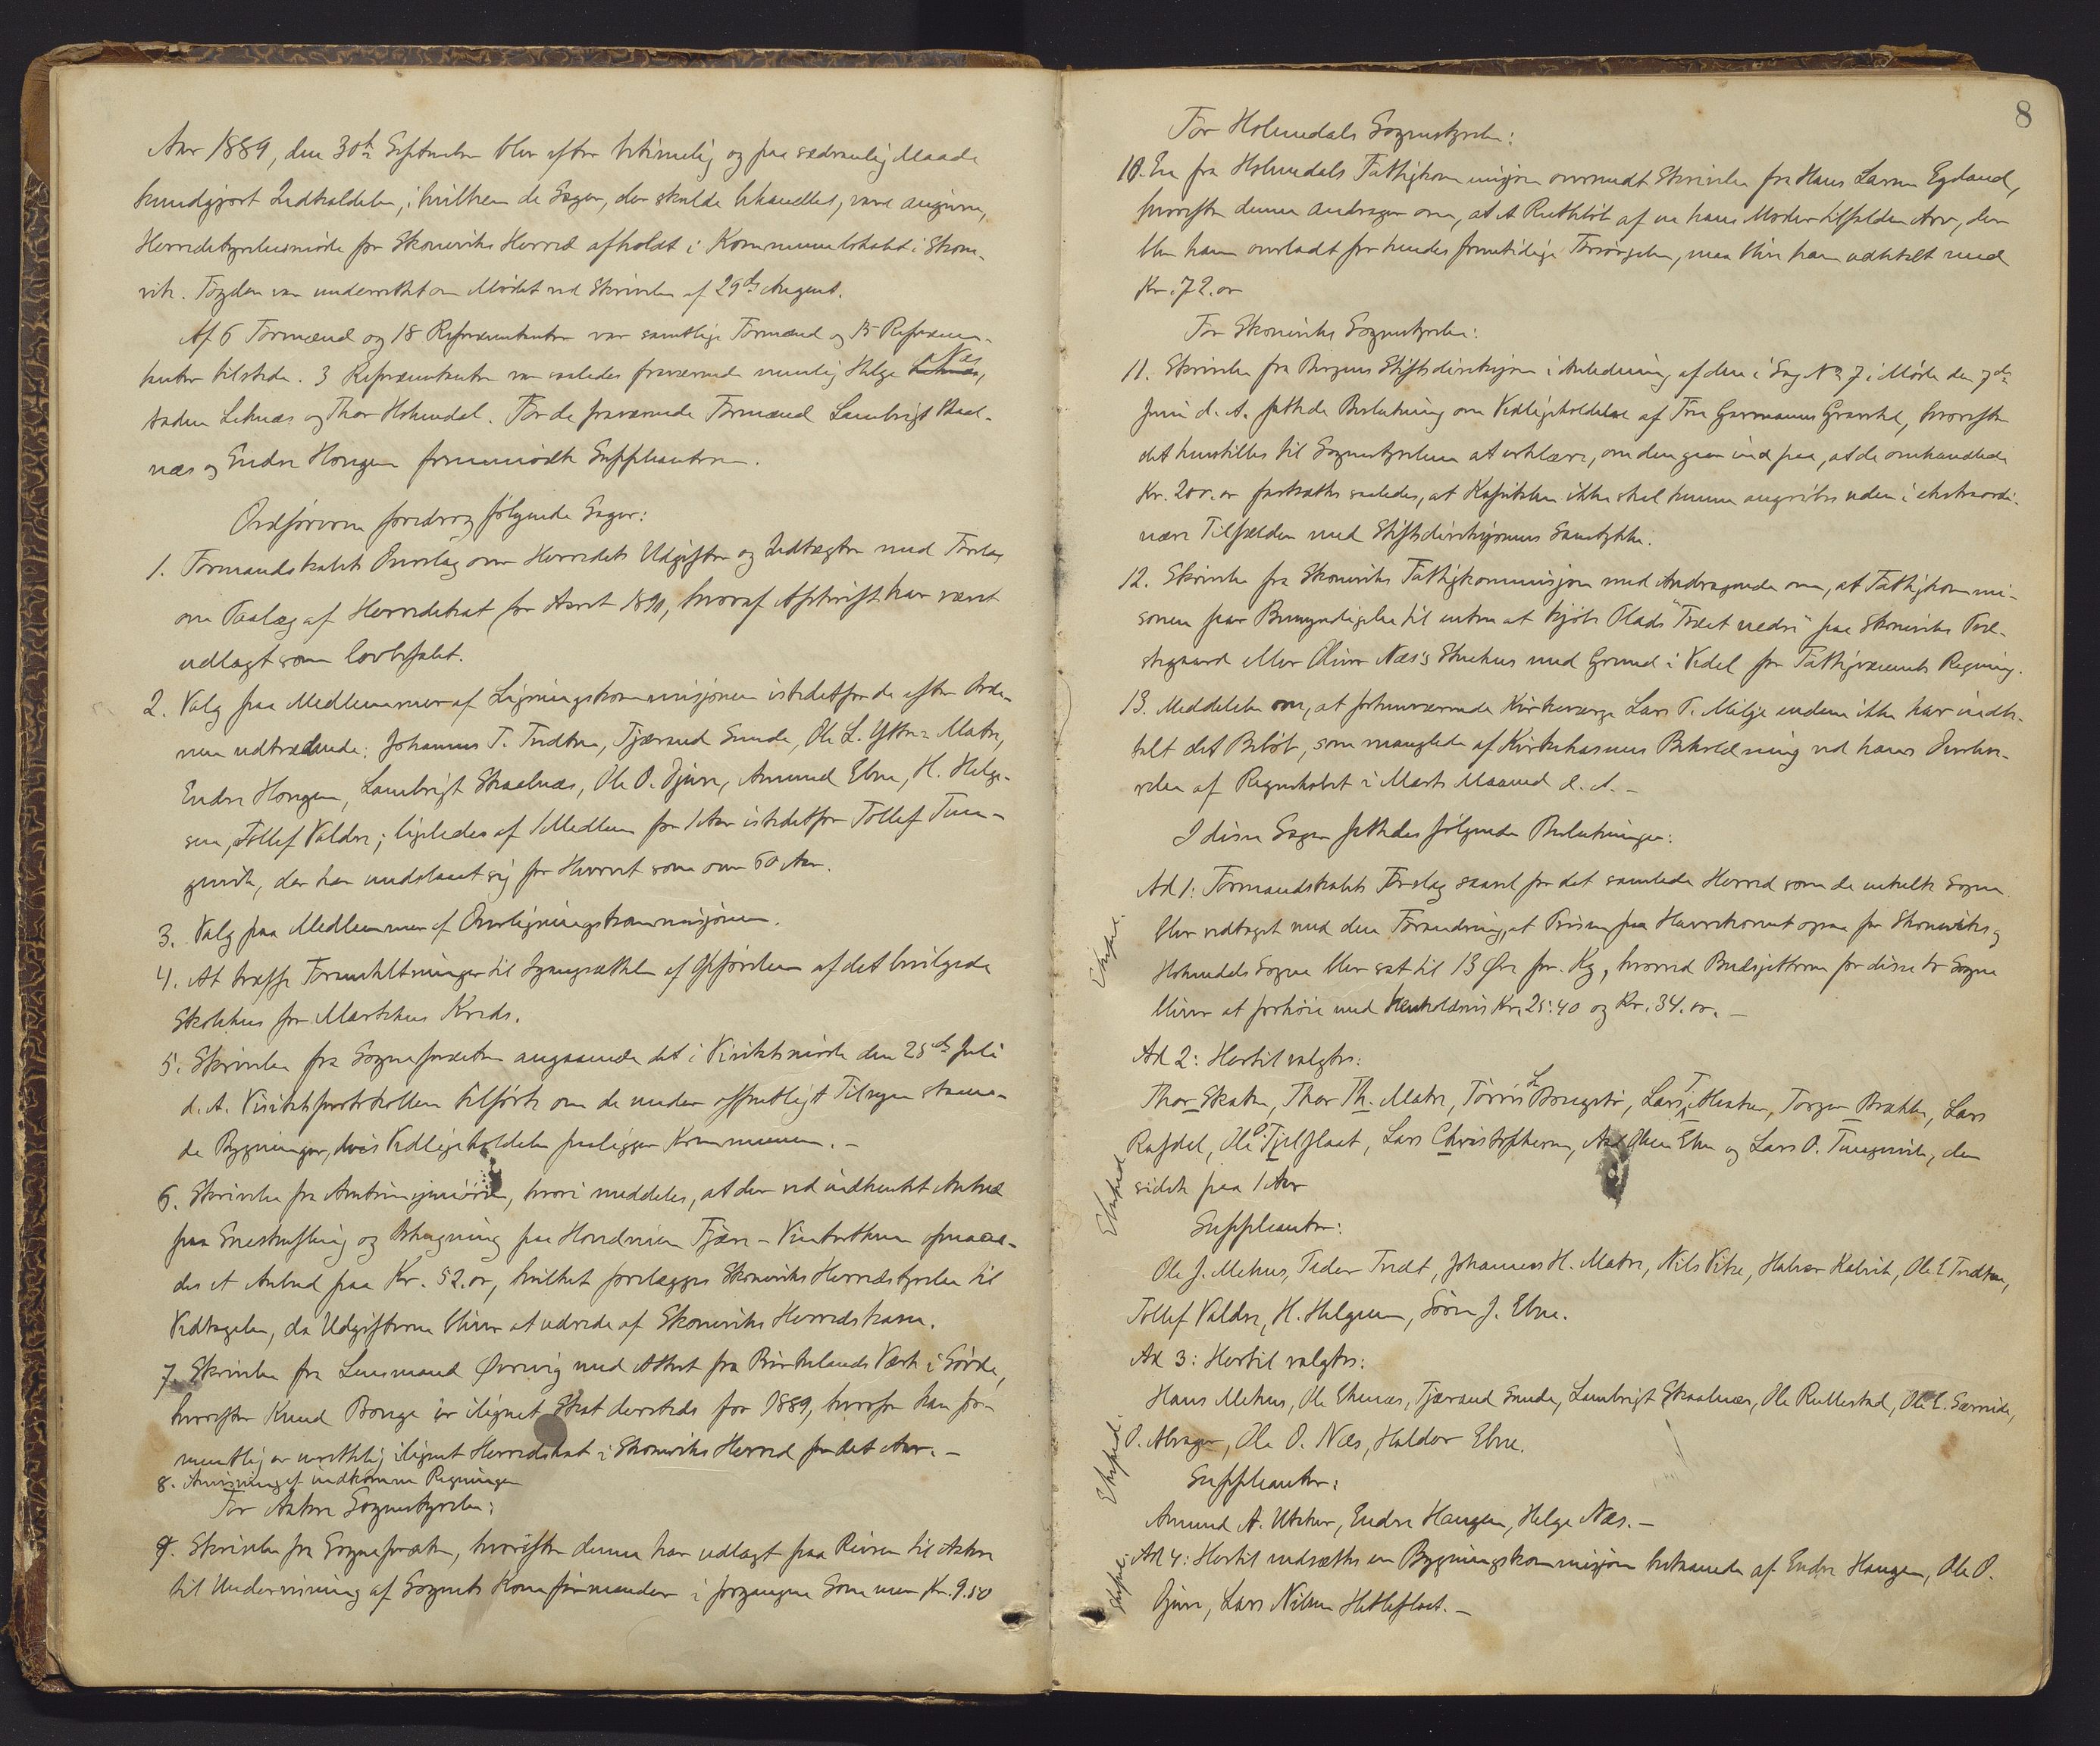 Aar 1889, den 30te September blev efter betimelig og paa sædvanlig Maade
kundgjort Indkaldelse, i hvilken de Sager, der skulde behandles, vare angivne,
Herredsstyrelsesmöde for Skoneviks Herred afholdt i Kommunelokalet i Skone-
vik. Fogden var underrettet om Mödet ved Skrivelse af 29de August.
Af 6 Formænd og 18 Repræsentanter var samtlige Formænd og 15 Repræsen-
tanter tilstede. 3 Repræsentanter var saaledes fraværende nemlig Helge Næs,
Leknæs og Thor Holmedal. For de fraværende Formænd Lambrigt Skaal-
næs og Endre Hougen fremmödte Suppleanterne.
Ordföreren foredrog fölgende Sager:
1. Formandskabets Overslag over Herredets Udgifter og Indtægter med Forslag
om Paalæg af Herredsskat for Aaret 1890, hvoraf Afskrift har været
udlagt som lovbefalet.
2. Valg paa Medlemmer af Ligningskommisjonen istedetfor de efter Orde-
nen udtrædende: Johannes T. Tvedten, Tjærand Sunde, Ole L. Ytre-Matre,
Endre Hougen, Lambrigt Skaalnæs, Ole O. Djuve, Amund Ebne, H. Helge-
sen, Tollef Valdre; ligeledes af 1 Medlem for 1 Aar istedetfor Tollef Tun-
gesvik, der har undslaaet sig for Hvervet som over 60 Aar.
3. Valg paa Medlemmer af Overligningskommisjonen.
4. At træffe Foranstaltninger til Igangsættelse af Opförelsen af det bevilgede
Skolehus for Markhus Kreds.
5. Skrivelse fra Sognepræsten angaaende det i Visitatsmöde den 25de Juli
d. A. Visitatsprotokollen tilförte om de under offentligt Tilsyn staaen-
de Bygninger, hvis Vedligeholdelse paaligger Kommunen. -
6. Skrivelse fra Amtsingeniören, hvori meddeles, at der ved indhentet Anbud
paa Grustaffling og Behugning paa Hovedveien Fjære - Vintertun opnaae-
des et Anbud paa Kr. 52.oo, hvilket forelægges Skoneviks Herredsstyrelse til
Vedtagelse, da Udgifterne bliver at udrede af Skoneviks Herredskasse.
7. Skrivelse fra Lensmand Øvrevig med Attest fra Birkelands Værk i Söfde,
hvorefter Knud Borge er ilignet Skat dersteds for 1889, hvorfor han for-
mentlig er urettelig ilignet Herredsskat i Skoneviks Herred for det Aar. -
8. Anvisning af indkomne Regninger
For Aakre Sognestyrelse:
9. Skrivelse fra Sognepræsten, hvorefter denne har udlagt paa Reiser til Aakre
til Undervisning af Sognets Konfirmander i forgangne Sommer Kr. 9.50
8
For Holmedals Sognestyrelse:
10. En fra Holmedals Fattigkommisjon oversendt Skrivelse fra Hans Larsen Egeland,
hvorefter denne andrager om, at et Restbelöb af en hans Moder tilfalden Arv, der
blev ham overladt for hendes fremtidige Forsörgelse, maa blive ham udbetalt med
Kr. 72.oo
For Skoneviks Sognestyrelse:
11. Skrivelse fra Bergens Stiftsdireksjon i Anledning af den i Sag No 7 i Möde den 7de
Juni d. A. fattede Beslutning om Vedligeholdelse af Fru Garmanns Gravsted, hvorefter
det henstilles til Sognestyrelsen at erklære, om den gaar ind paa, at de omhandlede
Kr. 200.oo fastsættes saaledes, at Kapitalen ikke skal kunne angribes uden i ekstraordi-
nære Tilfælder med Stiftsdireksjonens Samtykke.
12. Skrivelse fra Skoneviks Fattigkommisjon med Andragende om, at Fattigkommi-
sjonen faar Bemyndigelse til enten at kjöbe Plads "Træet nedre" paa Skoneviks Præ-
stegaard eller Oliver Næs's Stuehus med Grund i Vedel for Fattigvæsenets Regning.
13. Meddelelse om, at forhenværende Kirkeværge Lars T. Milje endnu ikke har indbe-
talt det Belöb, som manglede af Kirkekassens Beholdning ved hans Overleve-
relse af Regnskabet i Marts Maaned d. A. -
I disse Sager fattedes fölgende Beslutninger:
Eksped.
Ad 1: Formandskabets Forslag saavel for det samlede Herred som de enkelte Sogne
blev vedtaget med den Forandring, at Prisen paa Havrekornet ogsaa for Skoneviks og
Holmedals Sogne blev sat til 13 Øre pr. Kg, hvorved Budsjetterne for disse to Sogne
bliver at forhöie med henholdsvis Kr. 25:40 og Kr. 34.oo. -
Eksped
Ad 2: Hertil valgtes:
Thor Skaten, Thor Th. Matre, Törris L. Bougstö, Lars T. Alsaker, Torger Brekke, Lars
Rafdel, Ole O. Tjelflaat, Lars Christophersen, Olsen Ebne og Lars O. Tungesvik, den
sidste paa 1 Aar
Suppleanter:
Ole J. Mehus, Peder Tvedt, Johannes H. Matre, Nils Vike, Halvor Kalvik, Ole E. Tvedten,
Tollef Valdre, H. Helgesen, Sören J. Ebne.
Eksped.
Ad 3: Hertil valgtes:
Hans Mehus, Ole Ekenæs, Tjærand Sunde, Lambrigt Skaalnæs, Ole Rullestad, Ole E. Sævereide,
O. Alvager, Ole O. Næs, Haldor Ebne.
Suppleanter:
Amund A. Utaker, Endre Haugen, Helge Næs. -
Eksped.
Ad 4: Hertil nedsættes en Bygningskommisjon bestaaende af Endre Haugen, Ole O.
Djuve, Lars Nilsen Hetleflaat. -